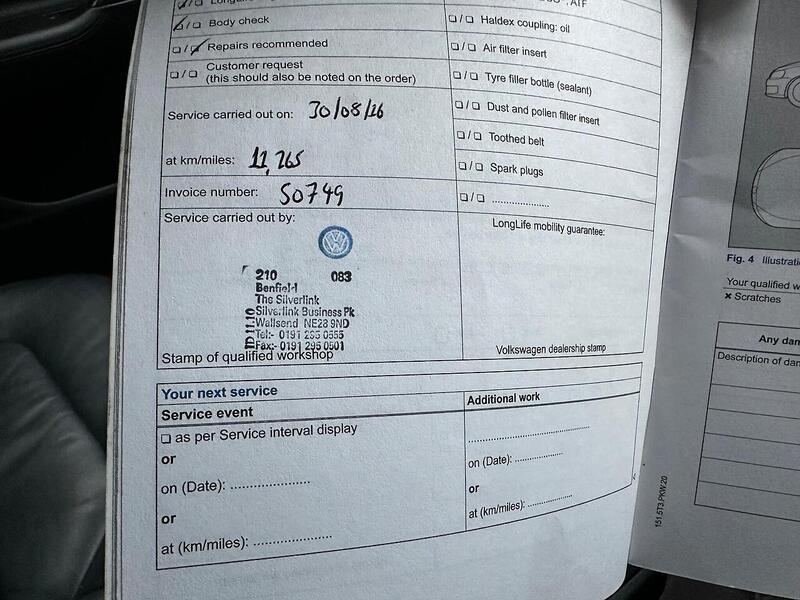 Body check
Repairs recommended
Customer request
(this should also be noted on the order)
Service carried out on: 30/08/16
at km/miles: 11,765
Invoice number: 50749
Service carried out by:
210 083
Benfield
The Silverlink
Silverlink Business Pk
Wallsend NE28 9ND
Tel:- 0191 295 0555
Fax:- 0191 295 0501
Stamp of qualified workshop
ATF
Haldex coupling: oil
Air filter insert
Tyre filler bottle (sealant)
Dust and pollen filter insert
Toothed belt
Spark plugs
LongLife mobility guarantee:
Volkswagen dealership stamp
Your next service
Service event
as per Service interval display
or
on (Date): ....................
or
at (km/miles): ....................
Additional work
..............................
on (Date): ............
or
at (km/miles): ............
151.5T3.PKW.20
Fig. 4
Your qualified
× Scratches
Any
Description of